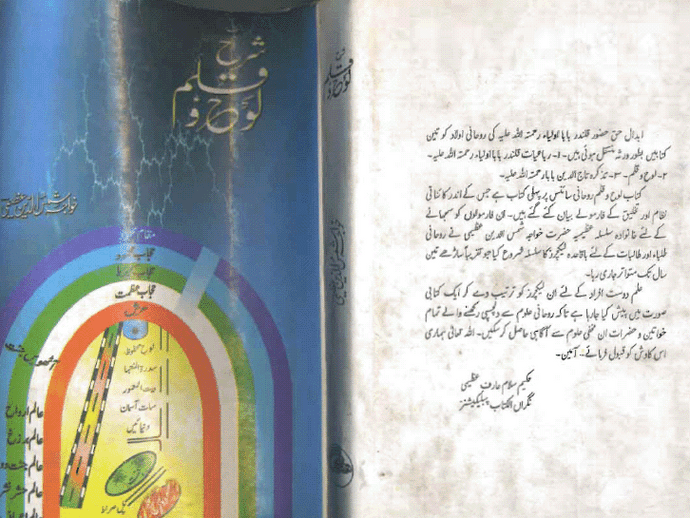 شرح
لوح و قلم
خواجہ شمس الدین عظیمی
مقام محمود
حجاب محمود
حجاب کبریا
حجاب عظمت
عرش
لوح محفوظ
سدرۃ المنتہیٰ
بیت المعمور
سات آسمان
دنیائیں
پل صراط
آٹھویں جنت
عالم ارواح
عالم برزخ
شرح
لوح و قلم
خواجہ شمس الدین عظیمی
ابدال حق حضور قلندر بابا اولیاء رحمتہ اللہ علیہ کی روحانی اولاد کو تین
کتابیں بطور ورثہ منتقل ہوئی ہیں۔ ۱۔ رباعیات قلندر بابا اولیاء رحمتہ اللہ علیہ۔
۲۔ لوح و قلم۔ ۳۔ تذکرہ تاج الدین بابا رحمتہ اللہ علیہ۔
کتاب لوح و قلم روحانی سائنس پر پہلی کتاب ہے جس کے اندر کائناتی
نظام اور تخلیق کے فارمولے بیان کئے گئے ہیں۔ ان فارمولوں کو سمجھانے
کے لئے خانوادہ سلسلہ عظیمیہ حضرت خواجہ شمس الدین عظیمی نے روحانی
طلباء اور طالبات کے لئے باقاعدہ لیکچرز کا سلسلہ شروع کیا جو تقریباً ساڑھے تین
سال تک متواتر جاری رہا۔
علم دوست افراد کے لئے ان لیکچرز کو ترتیب دے کر ایک کتابی
صورت میں پیش کیا جا رہا ہے تاکہ روحانی علوم سے دلچسپی رکھنے والے تمام
خواتین و حضرات ان مخفی علوم سے آگاہی حاصل کر سکیں۔ اللہ تعالیٰ ہماری
اس کاوش کو قبول فرمائے۔ آمین۔
حکیم سلام عارف عظیمی
نگراں الکتاب پبلیکیشنز